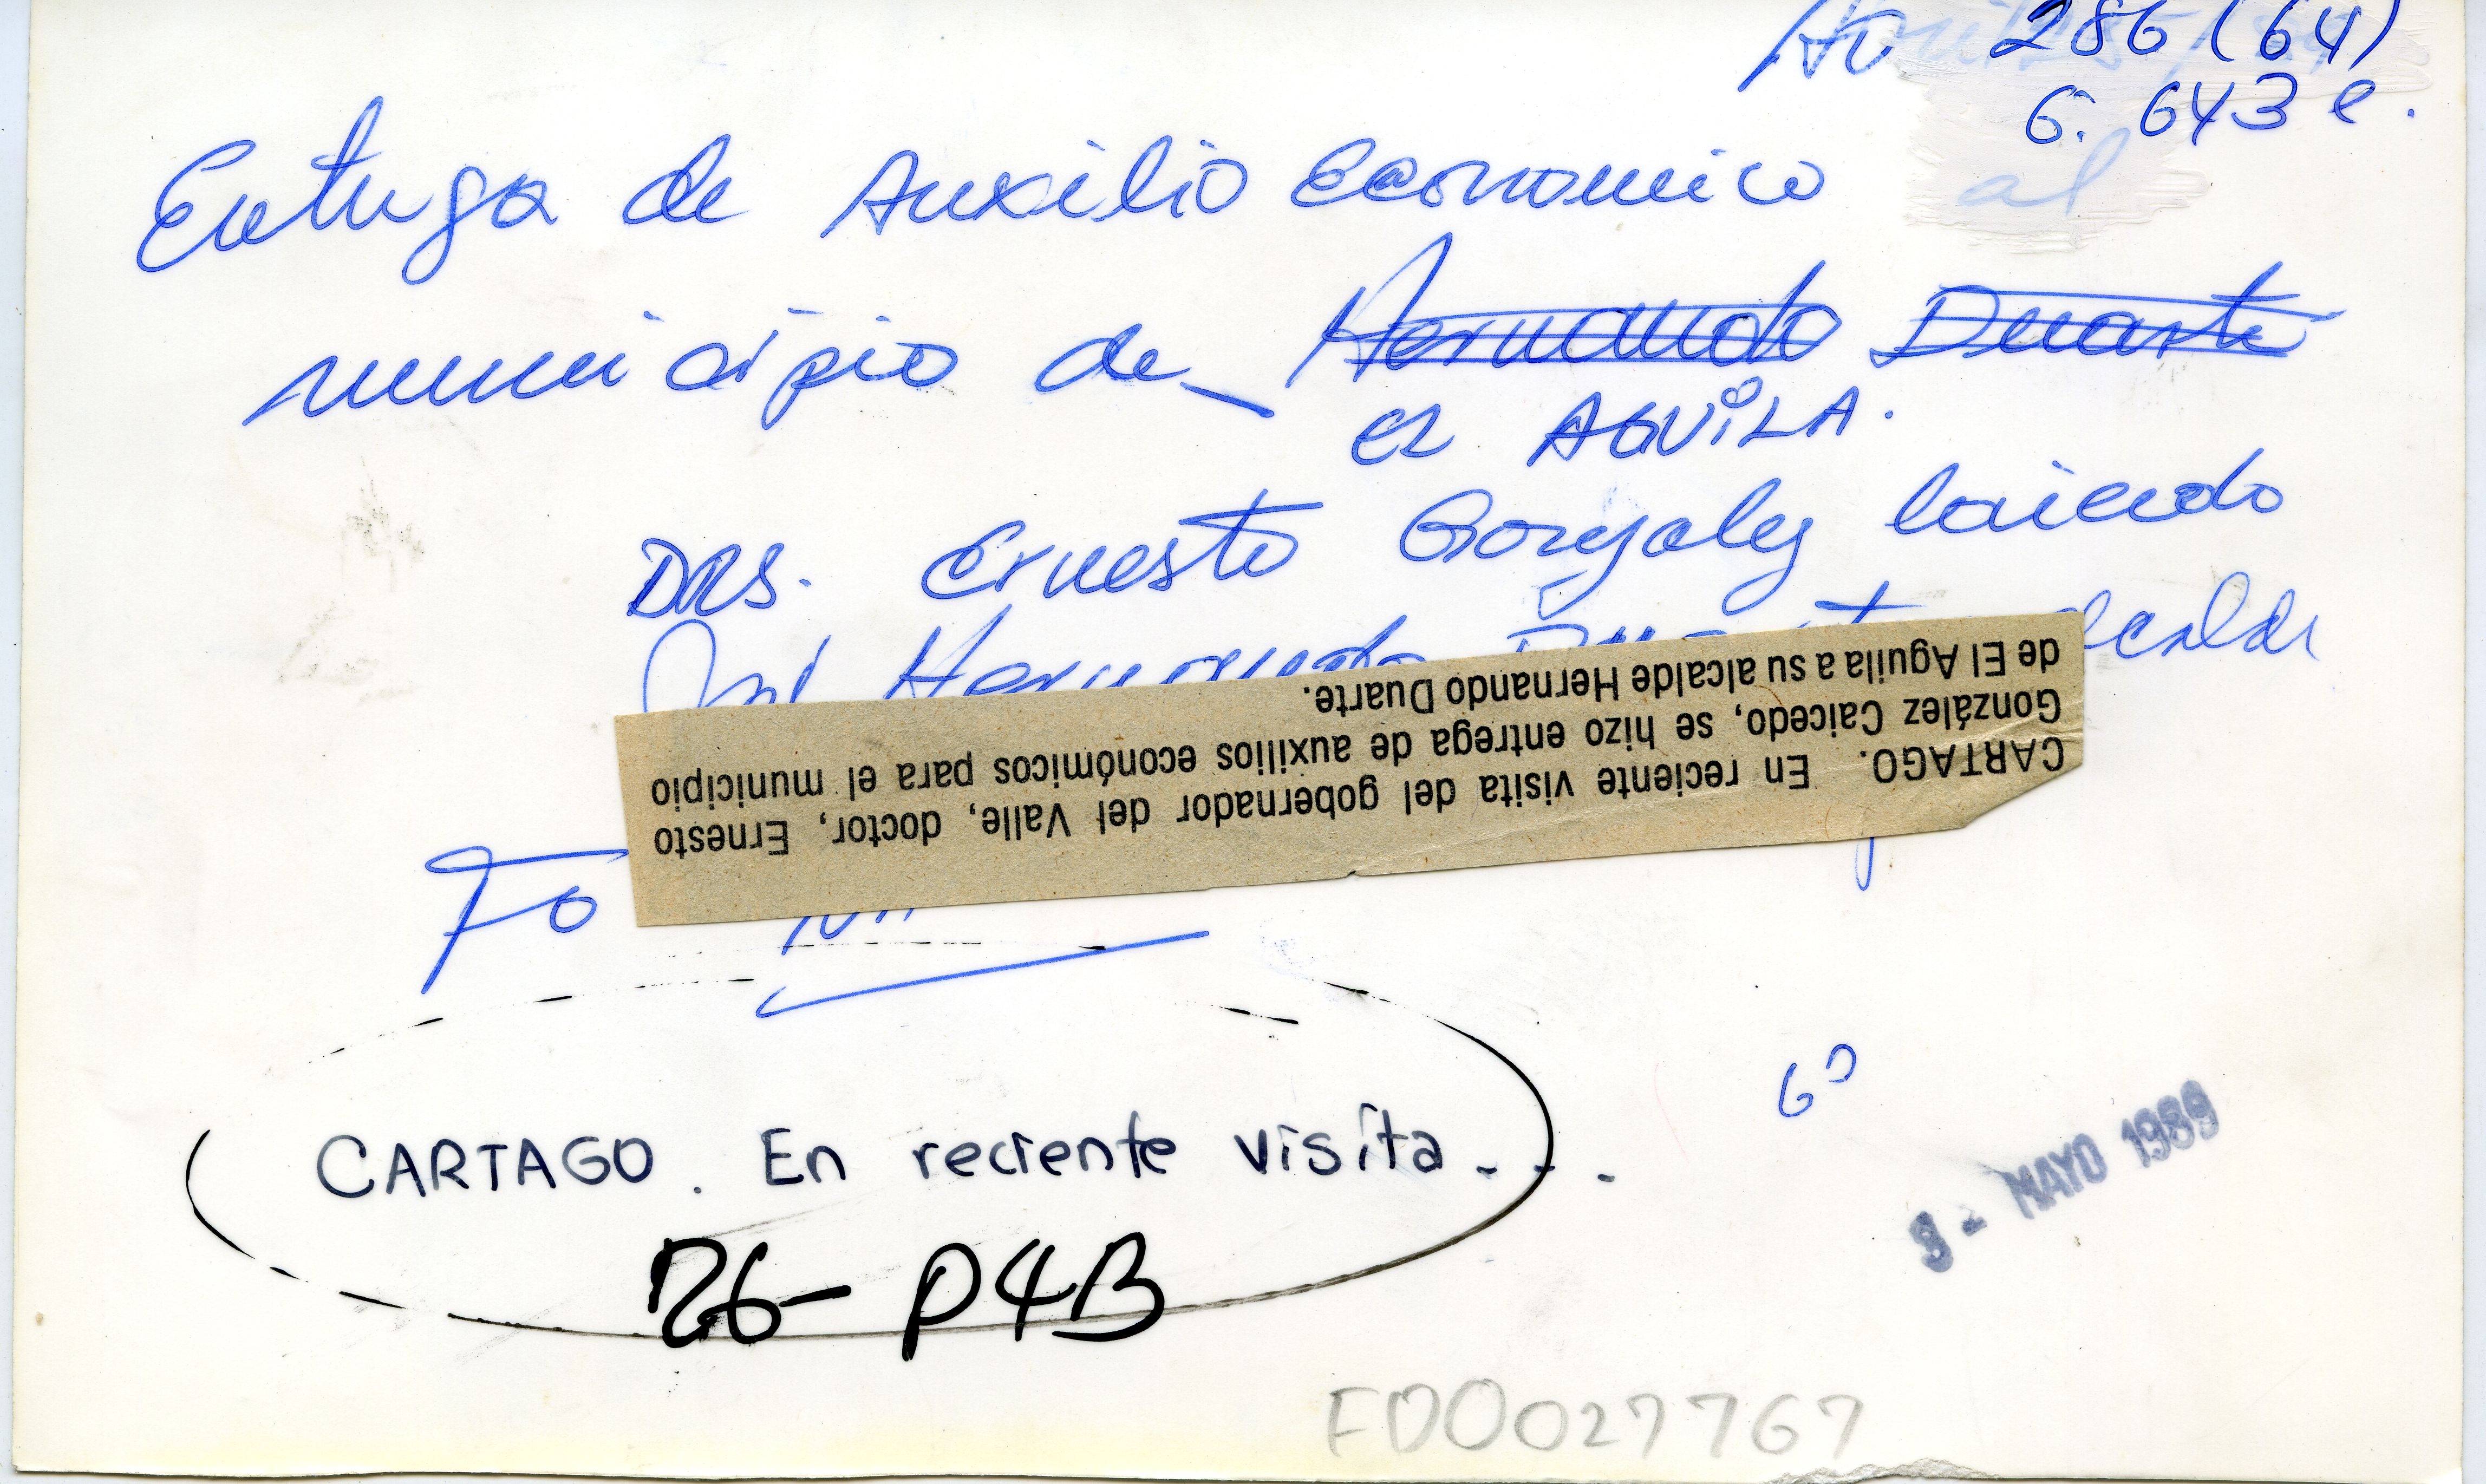 286 (64)
6. 643 e.
Entrega de Auxilio Economico al
municipio de Hernando Duarte
el AGUiLA.
DRS. Ernesto Gonzalez Caicedo
Hernando Duarte alcalde
CARTAGO. En reciente visita del gobernador del Valle, doctor, Ernesto
González Caicedo, se hizo entrega de auxilios económicos para el municipio
de El Aguila a su alcalde Hernando Duarte.
Fo
CARTAGO. En reciente visita....
26- P4B
9 - MAYO 1989
FD0027767